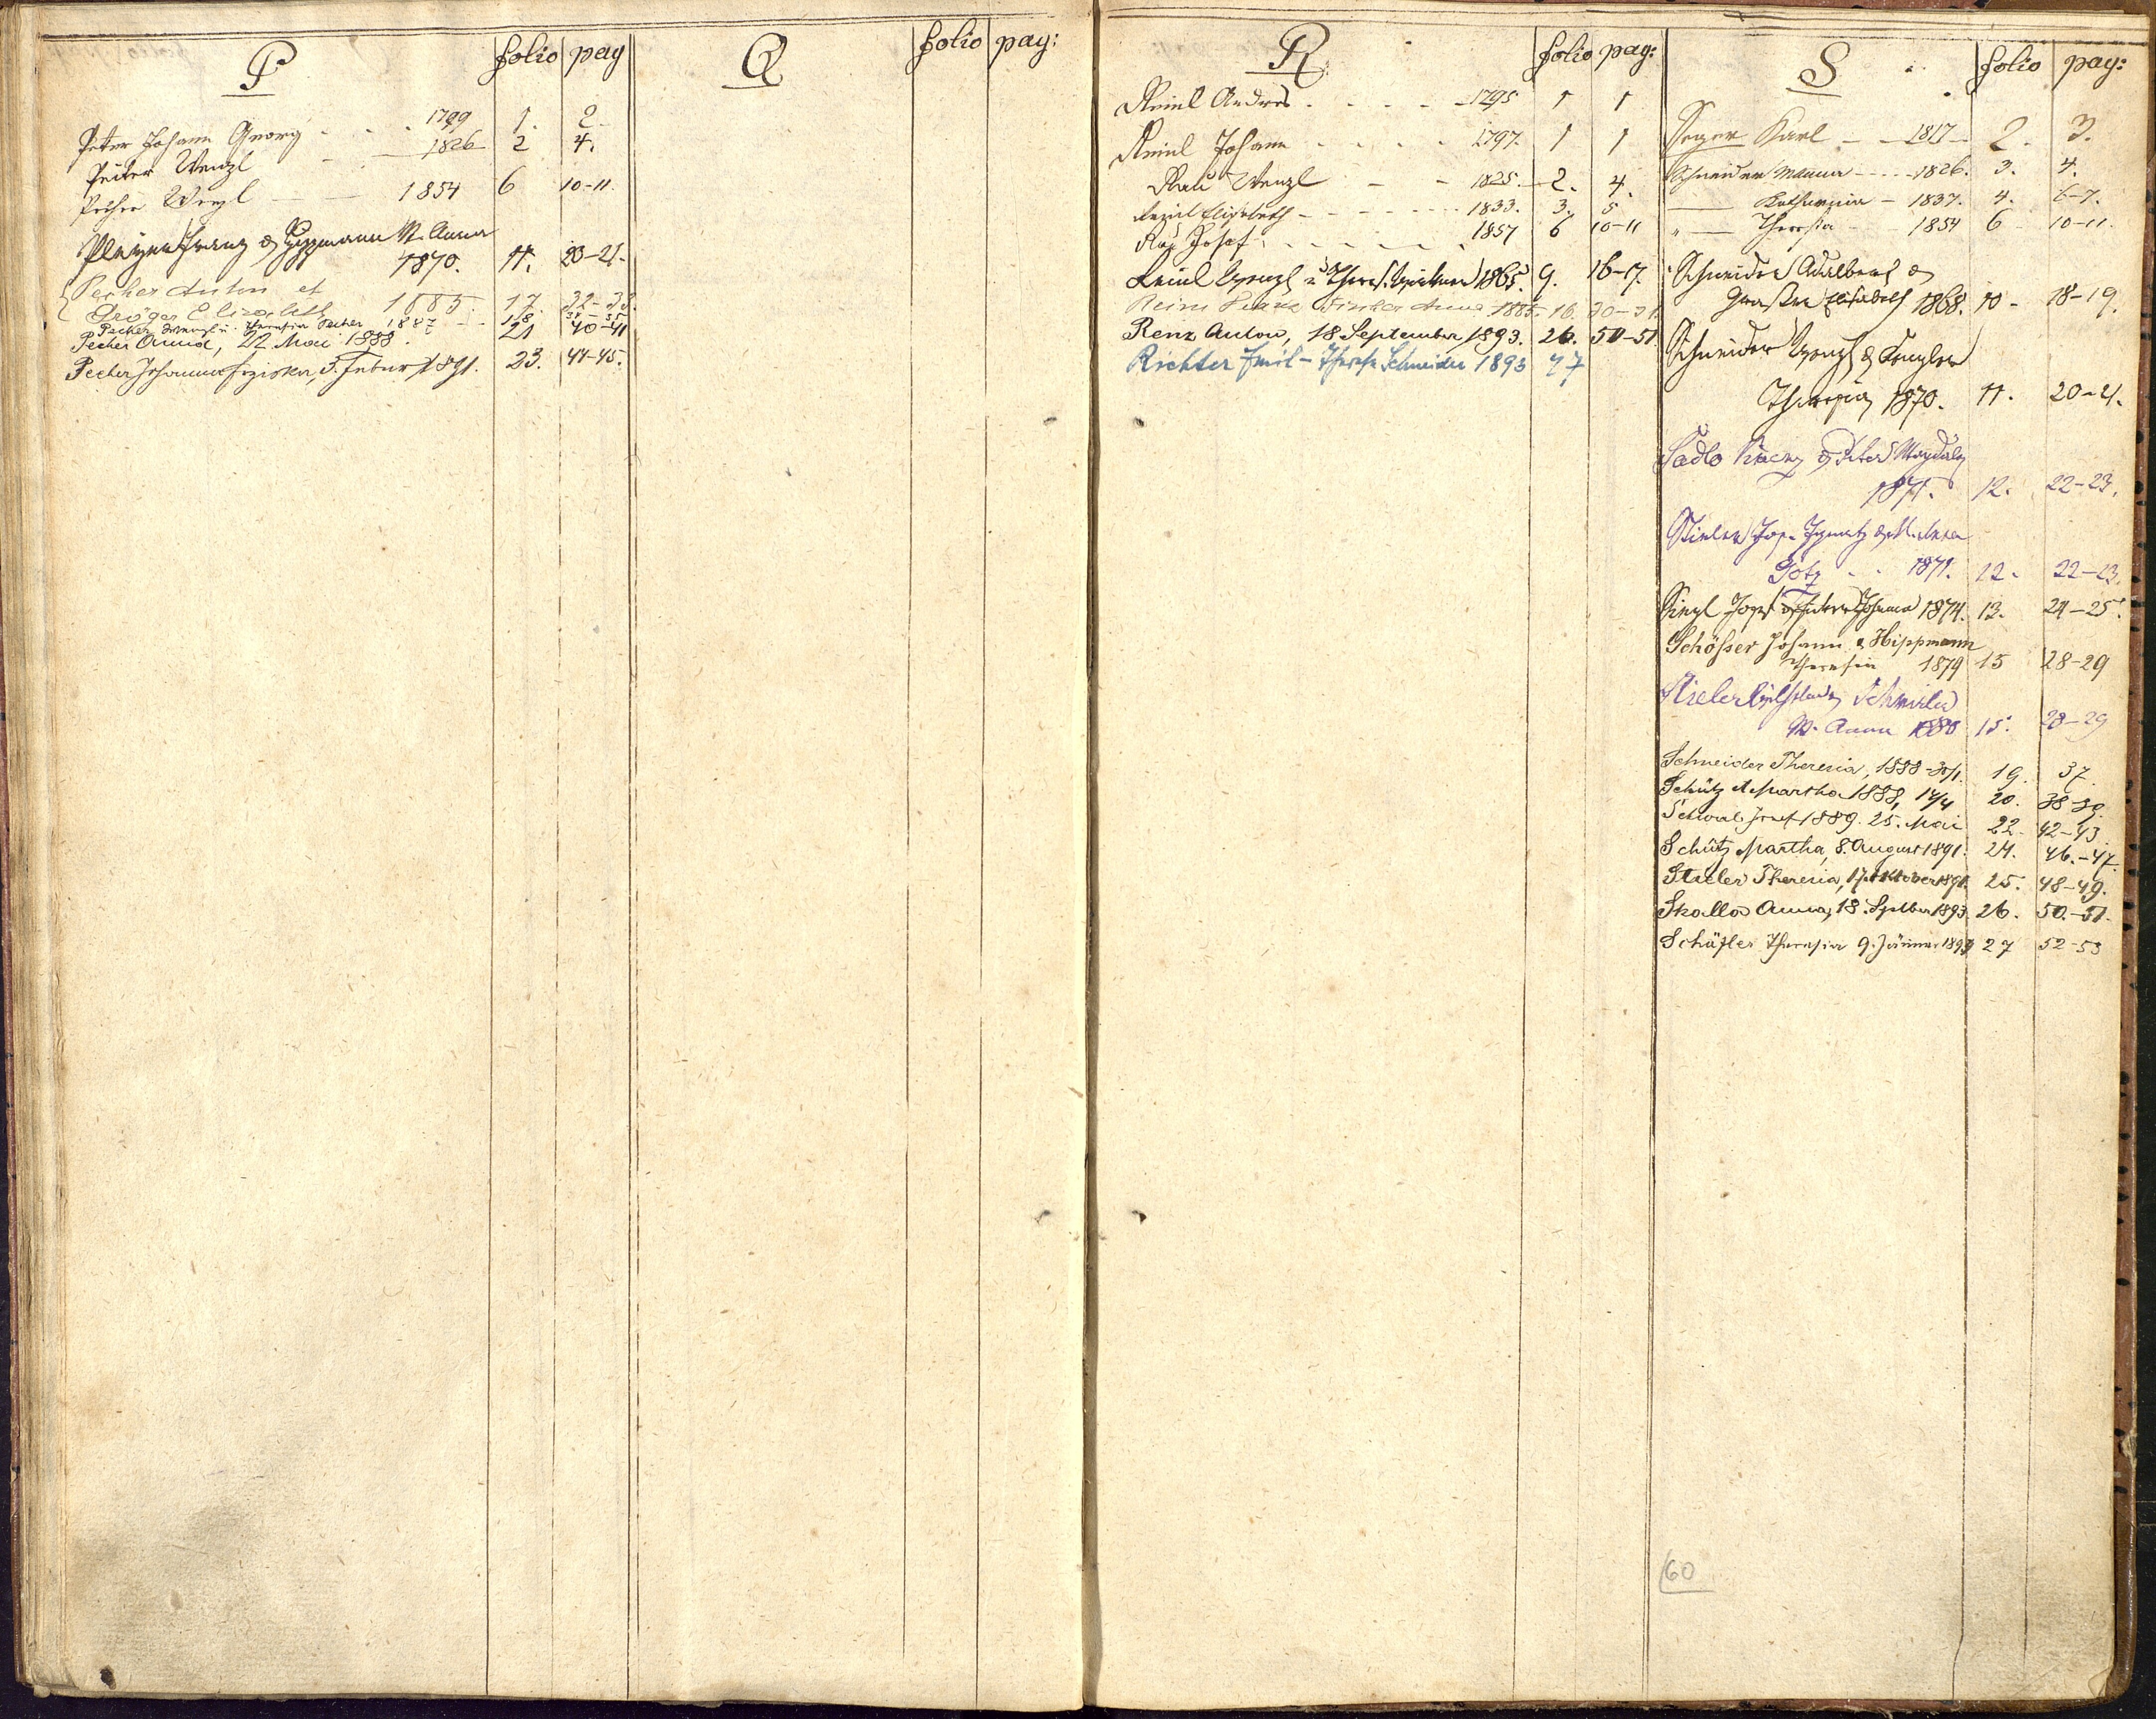 P folio pag
Peter Johann Georg - - - 1799 1. 2
Peiter Wenzl - 1826 2 4.
Pecher Wenzl - - 1854 6 10-11.
Franz & Hippmann M. Anna
1870. 11. 20-21.
Pecher Anton et
Gröger Elisabeth 1885. 17. 32-33.
Pecher Wenzl u. Theresia Pecher 1887 - - 18
Pecher Anna, 22 Mai 1888. 21 40-41
Pecher Johanna 1891. 23. 44-45.
Q folio pag:
R folio pag:
Reinl Andres - - - - 1795 1 1
Reinl Johann - - - - 1797. 1 1
Rau Wenzl - - 1825. 2. 4.
Reinl Elisabeth - - - - - - 1833. 3. 5
Josef - - - - - 1857 6 10-11
Reinl Wenzl u Theres. 1865. 9. 16-17.
Reinl Anna 1885. 16. 30-31.
Renz Anton, 18 September 1893. 26. 50-51
Richter Emil - Theresa Schneider 1893 47
S folio pag:
Seger Karl - - 1817 - 2. 3.
Schneider - - - - 1826. 3. 4.
—— Katharina - 1837. 4. 6-7.
" —— Theresia - 1854 6 10-11.
Schneider Adalbert &
Elisabeth 1868. 10 - 18-19.
Schneider Wenzl &
Theresia 1870. 11. 20-21.
Sadlo & Peter Magdalen
1871. 12. 22-23.
Stieler Jos. Ignatz & M. Anna
Götz - - 1871. 12. 22-23.
Josef & Johanna 1874. 13. 24-25.
Schösser Johann & Hippmann
Theresia 1879 15 28-29
Stieler Schneider
M. Anna 1880 15. 28-29
Schneider Theresia, 1888-30/1. 19. 37
Schütz Martha 1888, 14/4 20. 38-39.
Josef 1889. 25. Mai 22. 42-43.
Schütz Martha, 8. August 1891. 24. 46.-47
Stieler Theresia, 17. Oktober 1891. 25. 48-49.
Skalla Anna, 18. Septber 1893. 26. 50.-51.
Schäfler Theresia 9. Jänner 27 52-53
60